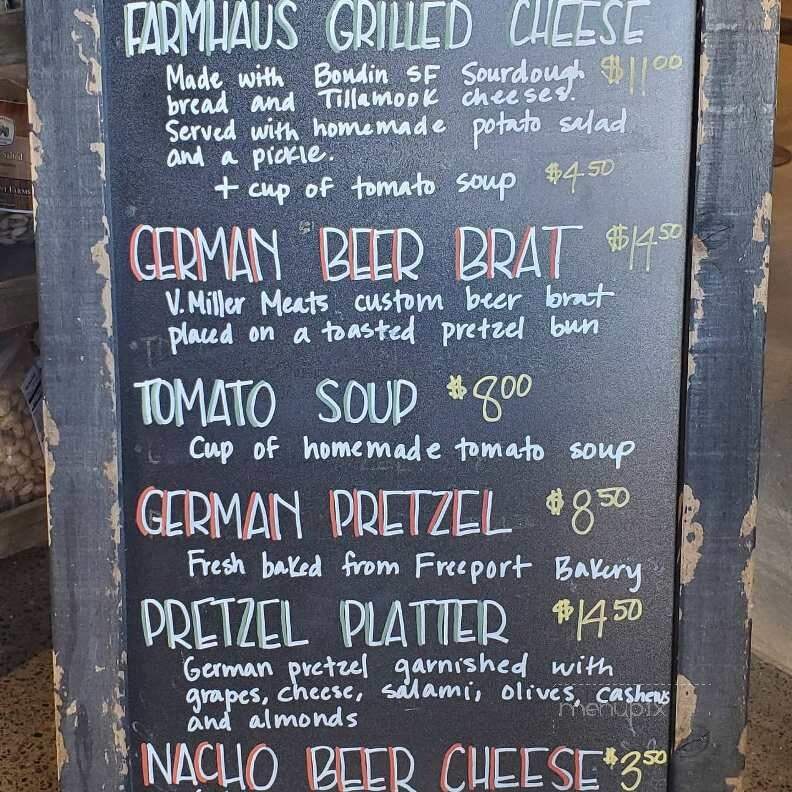 FARMHAUS GRILLED CHEESE
Made with Boudin SF Sourdough $11.00
bread and Tillamook cheeses.
Served with homemade potato salad
and a pickle.
+ cup of tomato soup $4.50
GERMAN BEER BRAT $14.50
V. Miller Meats custom beer brat
placed on a toasted pretzel bun
TOMATO SOUP $8.00
Cup of homemade tomato soup
GERMAN PRETZEL $8.50
Fresh baked from Freeport Bakery
PRETZEL PLATTER $14.50
German pretzel garnished with
grapes, cheese, salami, olives, cashews
and almonds
menupix
NACHO BEER CHEESE $3.50